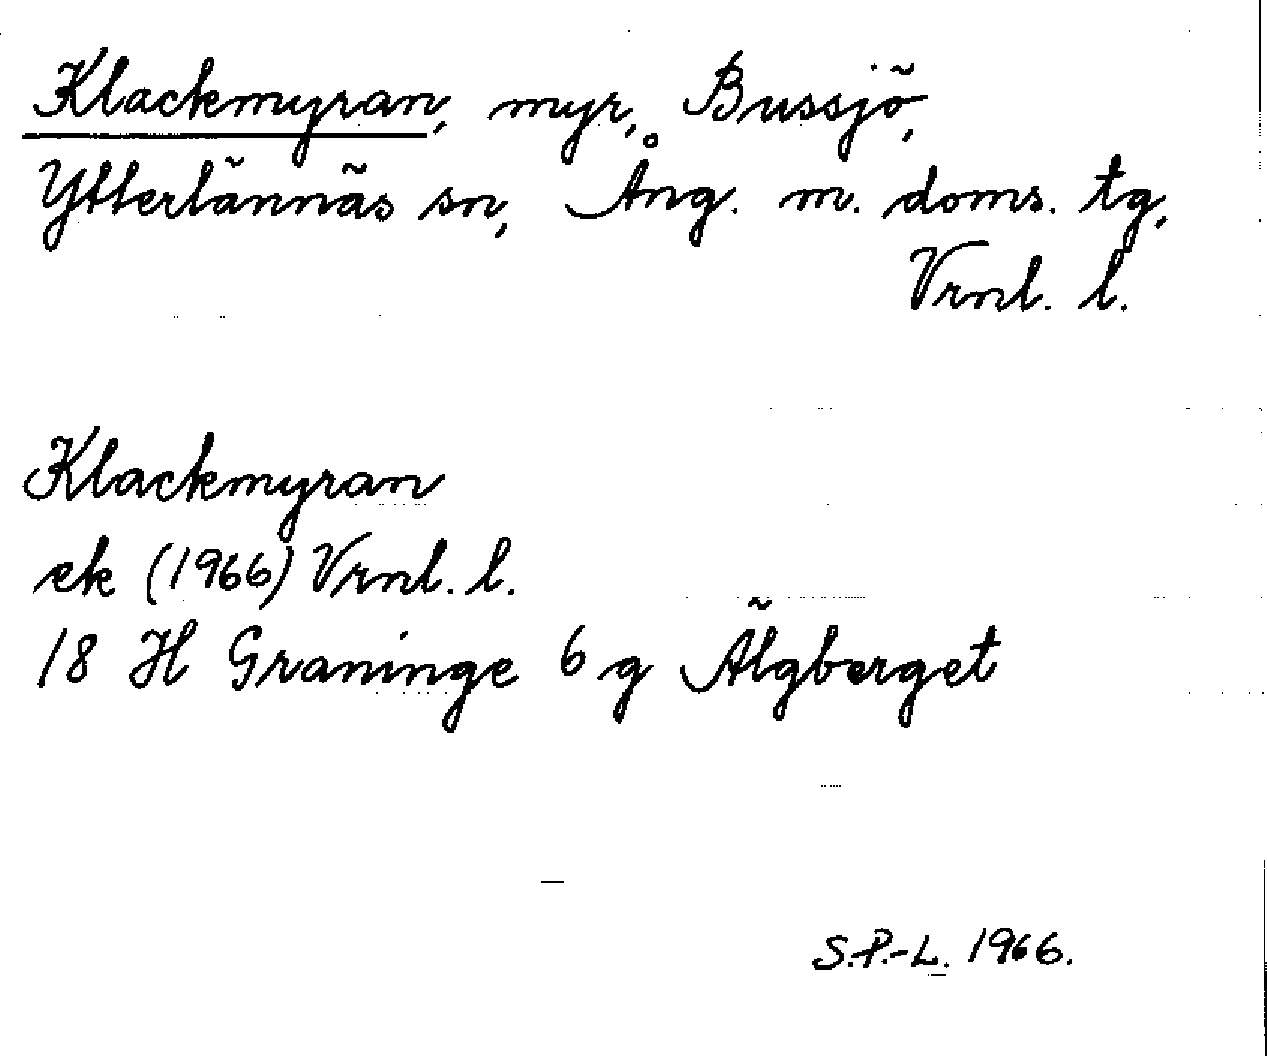 Klackmyran, myr, Bussjö,
Ytterlännäs sn, Ång. m. doms. tg,
Vrnl. l.
Klackmyran
ek (1966) Vrnl. l.
18 H Graninge 6 g Älgberget
S.P.-L. 1966.